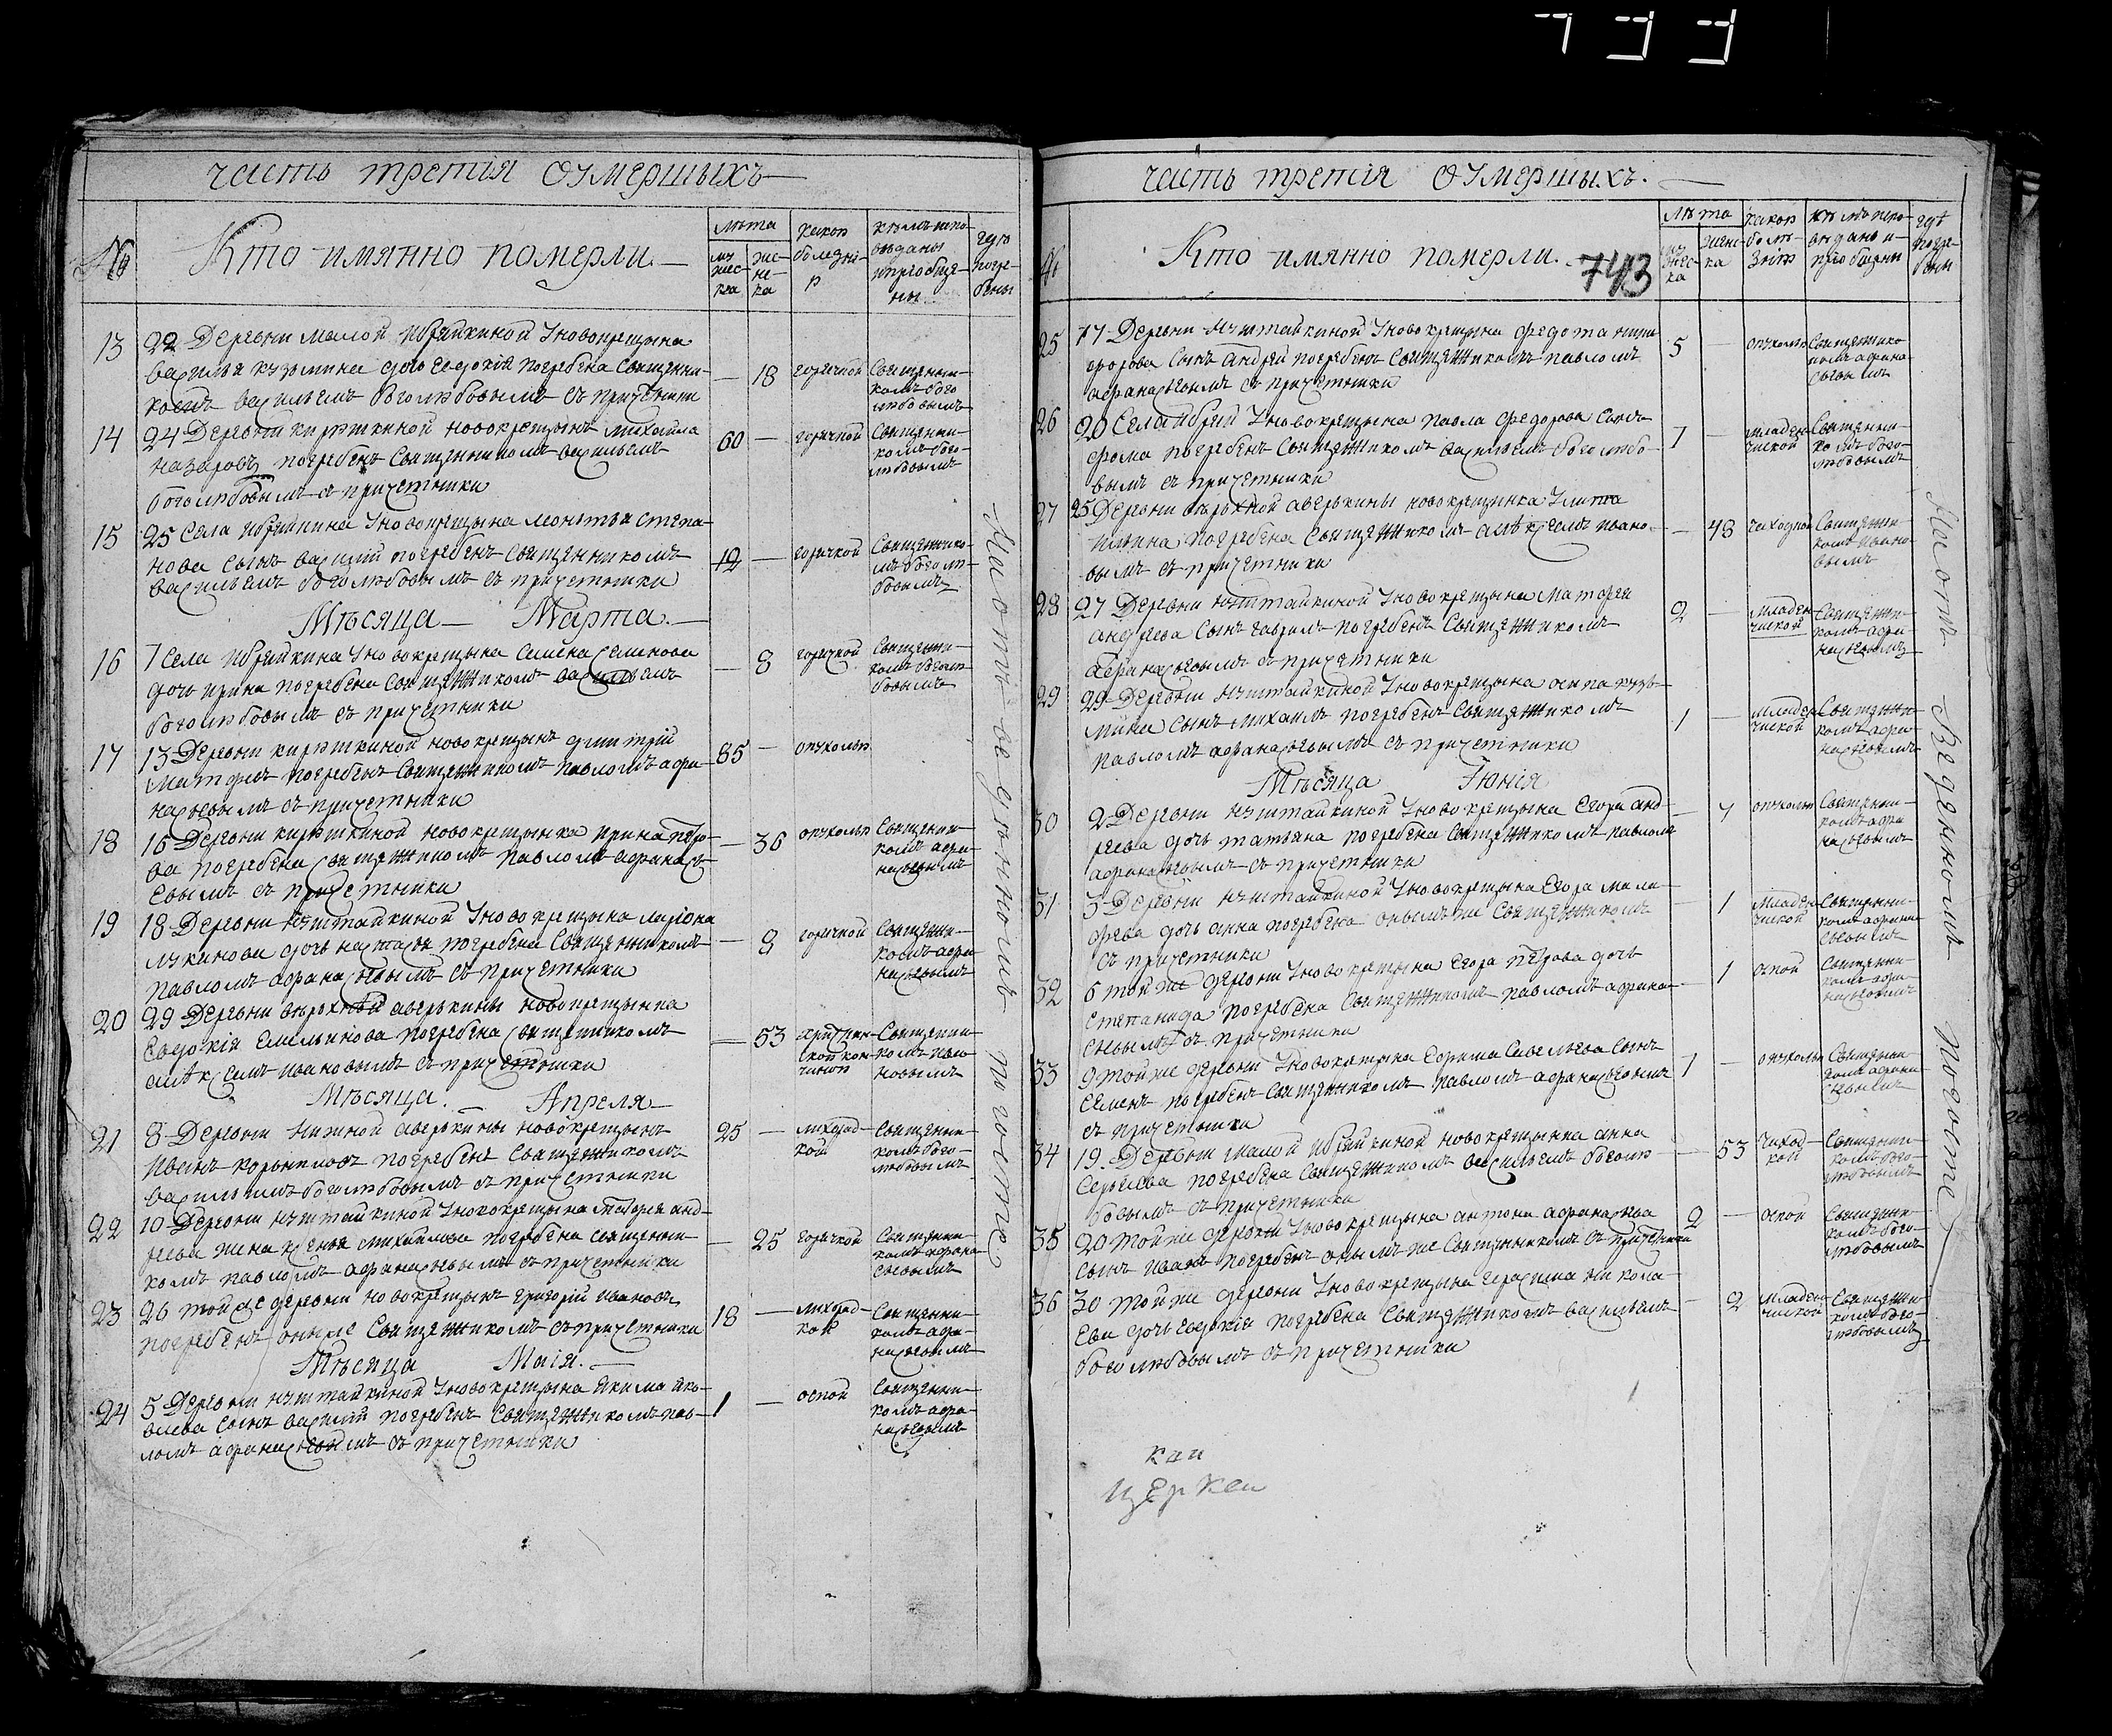 733
часть третія оумершыхъ
№
Кто имянно померли
лѣта
мужеска
женска
какою болезнію
кѣмъ исповѣданы и приобщены
где погребены
13
22 Деревни малой ибряйкиной у новокрещына
василья кузьмина дочь евдокія погребена священни-
комъ васильемъ боголюбовымъ съ причетники
— 18 горячкой
священни-
комъ бого
любовымъ
14
24 Деревни кирюшкиной новокрещынъ михаила
назаровъ погребенъ священникомъ васильемъ
боголюбовымъ съ причетники
60 — горячкой
священни-
комъ бого-
любовымъ
15
25 Села ибряйкина у новокрещына леонтья степа-
нова сынъ василий погребенъ священникомъ
васильемъ боголюбовымъ съ причетники
12 — горячкой
священнико-
мъ боголю-
бовымъ
Мѣсяца Марта
16
7 Села ибряйкина у новокрещына семена семенова
дочь ирина погребена священникомъ васильемъ
боголюбовымъ съ причетники
— 8 горячкой
священни-
комъ боголю-
бовымъ
17
13 Деревни кирюшкиной новокрещынъ димитрій
матфеевъ погребенъ священникомъ павломъ афа-
насьевымъ съ причетники
85 — опухолью
18
16 Деревни кирюшкиной новокрещынка ирина петро-
ва погребена священникомъ павломъ афанась-
евымъ съ причетники
— 36 опухолью
священни-
комъ афа-
насьевымъ
19
18 Деревни нуштайкиной у новокрещына ларіона
лукинова дочь настасья погребена священникомъ
павломъ афанасьевымъ съ причетники
— 8 горячкой
священни-
комъ афа-
насьевымъ
20
29 Деревни верхней аверькины новокрещынка
евдокія емельянова погребена священникомъ
алѣкѣемъ ивановымъ съ причетники
— 53 христиан-
ской кон-
чиной
священни-
комъ ива-
новымъ
Мѣсяца Апреля
21
8 Деревни нижной аверькины новокрещынъ
иванъ корьниловъ погребенъ священникомъ
васильемъ боголюбовымъ съ причетники
25 — лихорад-
кой
священни-
комъ бого-
любовымъ
22
10 Деревни нуштайкиной у новокрещына матфея анд-
реева жена ксенья михайлова погребена священни-
комъ павломъ афанасьевымъ съ причетники
— 25 горячкой
священни-
комъ афана-
сьевымъ
23
26 той же деревни новокрещынъ григорій ивановъ
погребенъ оныме священникомъ съ причетники
18 — лихорад-
кой
священни-
комъ афа-
насьевымъ
Мѣсяца Маія
24
5 Деревни нуштайкиной у новокрещына якима яко-
влева сынъ василий погребенъ священникомъ пав-
ломъ афанасьевымъ съ причетники
1 — оспой
священни-
комъ афа-
насьевымъ
На отведенномъ погосте
часть третія оумершыхъ.
№
Кто имянно померли.
743
лѣта
мужеска
женска
какою болѣзнію
кѣмъ исповѣданы и приобщены
гдѣ погребены
25
17 Деревни нуштайкиной у новокрещына федота ники-
форова сынъ андрей погребенъ священникомъ павломъ
афанасьевымъ съ причетники
5 — опухолью
священнико
комъ афана
сьевымъ
26
20 Села ибряй у новокрещына павла федорова сынъ
фома погребенъ священникомъ васильемъ боголюбо-
вымъ съ причетники
1 — младен-
ческой
священни-
комъ бого-
любовымъ
27
25 Деревни верьхной аверькины новокрещынка улита
ильина погребена священникомъ алѣксѣемъ ивано-
вымъ съ причетники
— 48 чиходкой
священни-
комъ ивано-
вымъ
28
27 Деревни нуштайкиной у новокрещына матфея
андреева сынъ гаврилъ погребенъ священникомъ
афанасьевымъ съ причетники
2 — младен-
ческой
священни-
комъ афа-
насьевымъ
29
29 Деревни нуштайкиной у новокрещына осипа кузь-
мина сынъ михаилъ погребенъ священникомъ
павломъ афанасьевымъ съ причетники
1 — младен-
ческой
священни-
комъ афа-
насьевымъ
Мѣсяца Іюнія
30
2 Деревни нуштайкиной у новокрещына егора анд-
реева дочь татьяна погребена священникомъ павломъ
афанасьевымъ съ причетники
— 7 опухолью
священни-
комъ афа
насьевымъ
31
5 Деревни нуштайкиной у новокрещына егора мала-
феева дочь анна погребена онымъ же священникомъ
съ причетники
— 1 младен-
ческой
священни-
комъ афана-
сьевымъ
32
6 той же деревни у новокрещына егора петрова дочь
степанида погребена священникомъ павломъ афана-
сьевымъ съ причетники
— 1 оспой
священни-
комъ афа-
насьевымъ
33
9 той же деревни у новокрещына ефрема савельева сынъ
семенъ погребенъ священникомъ павломъ афанасьевымъ
съ причетники
1 — опухолью
священни-
комъ афана-
сьевымъ
34
19 Деревни малой ибряйкиной новокрещынка анна
сергеева погребена священникомъ васильемъ боголю-
бовымъ съ причетники
— 53 чиход-
кой
священни-
комъ бого-
любовымъ
35
20 той же деревни у новокрещына антона афанасьева
сынъ иванъ погребенъ онымъ же священникомъ съ причетники
2 — оспой
священни-
комъ бого-
любовымъ
36
30 той же деревни у новокрещына герасима никола-
ева дочь евдокія погребена священникомъ васильемъ
боголюбовымъ съ причетники
— 2 младен-
ческой
священни-
комъ бого-
любовымъ
На отведенномъ погосте
церкви